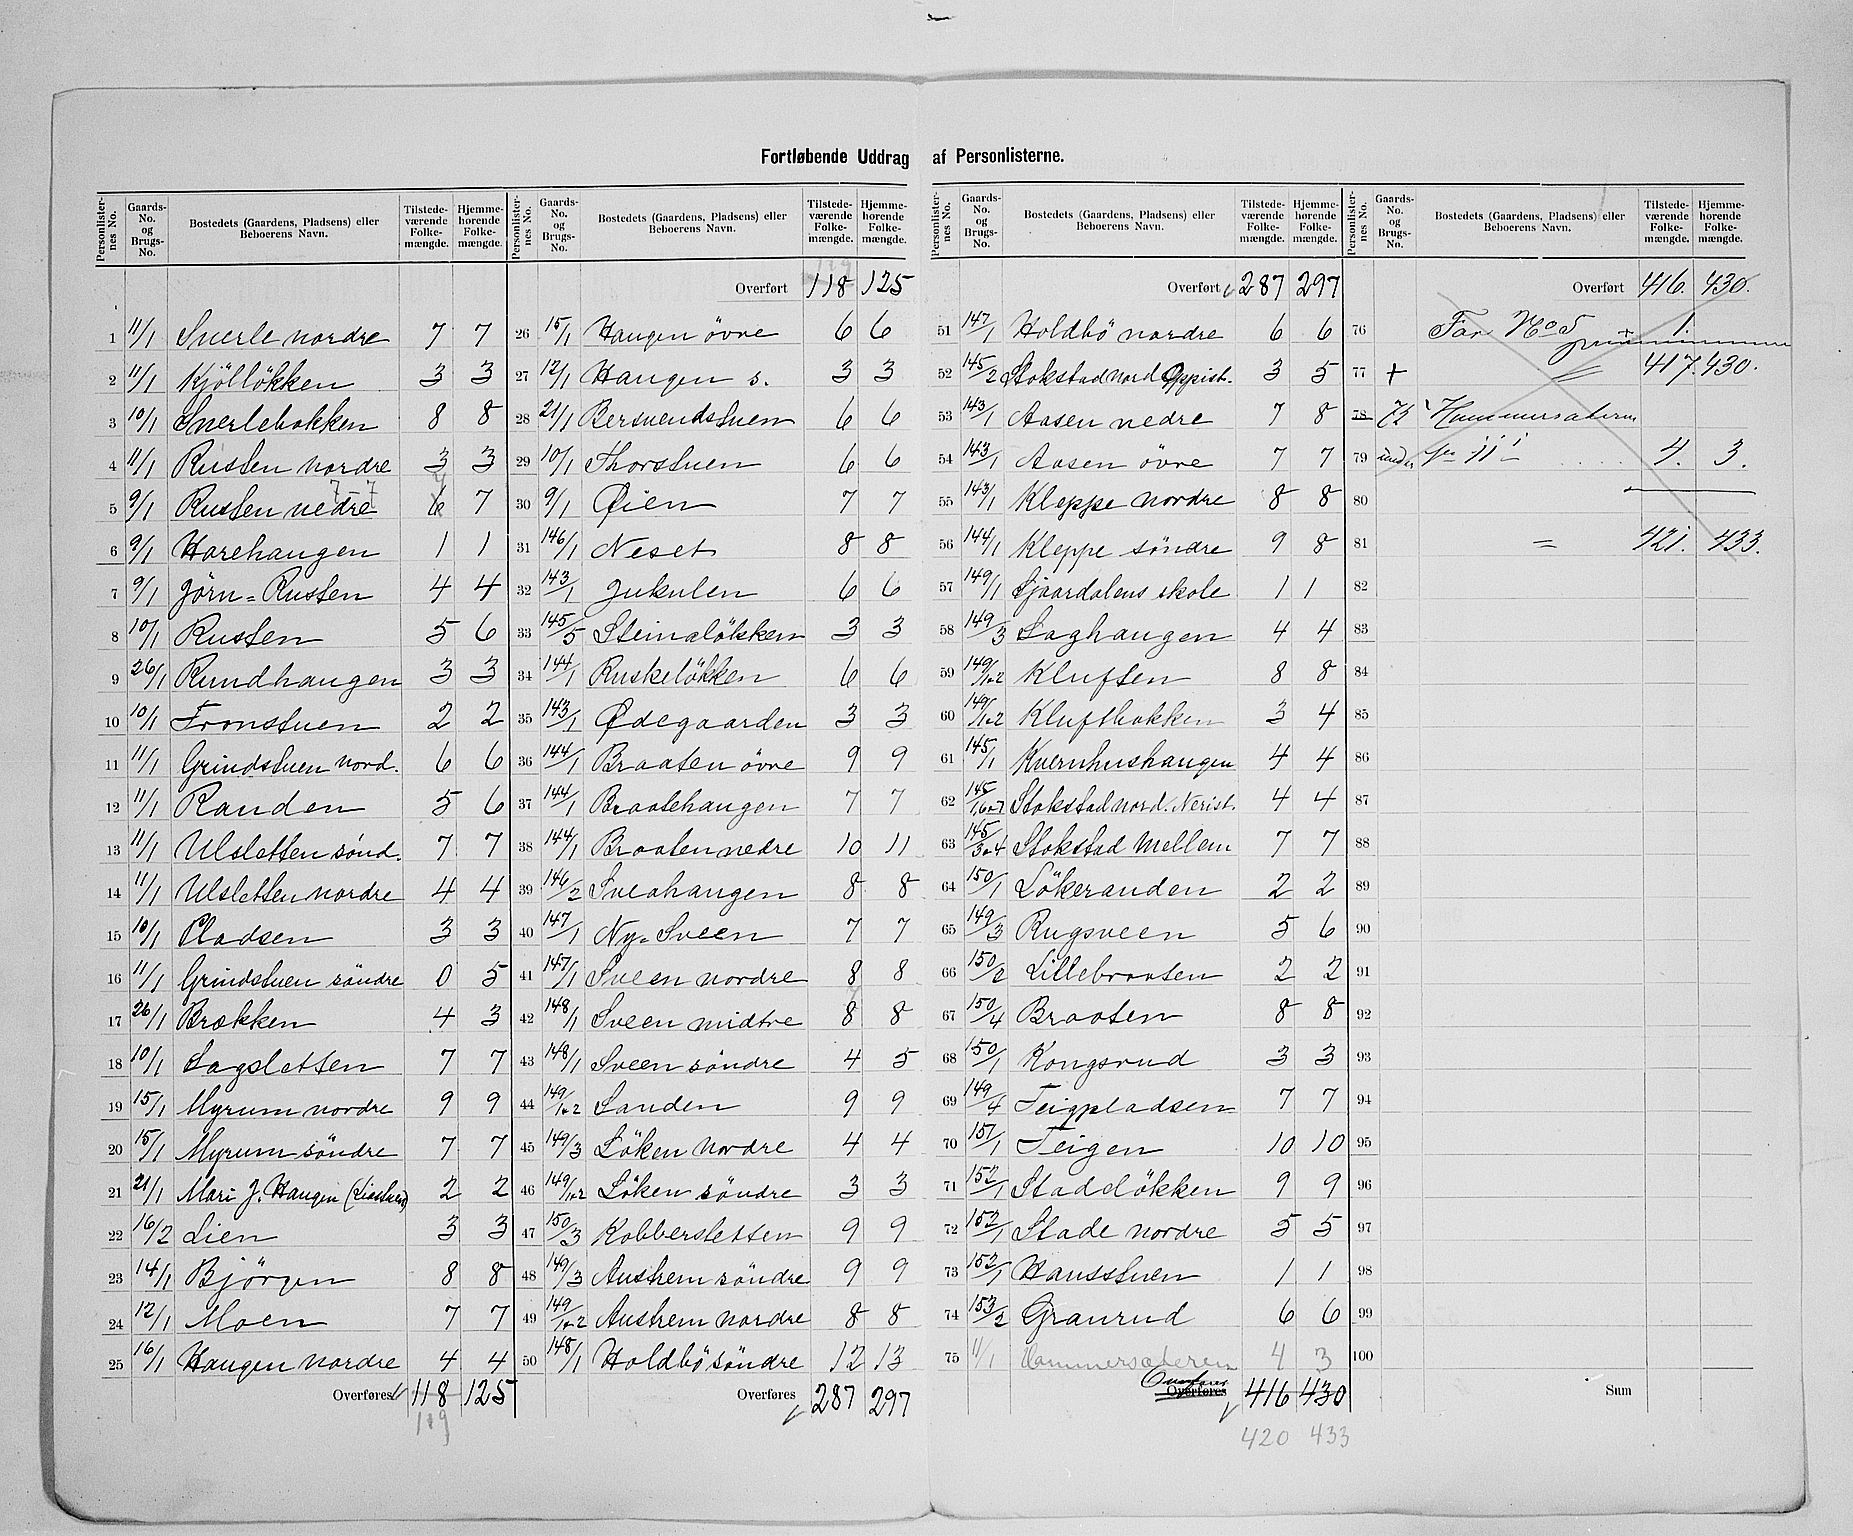 Fortløbende Uddrag af Personlisterne.
Personlister-nes No. | Gaards-No. og Brugs-No. | Bostedets (Gaardens, Pladsens) eller Beboerens Navn. | Tilstede-værende Folke-mængde. | Hjemme-hørende Folke-mængde.
1 11/1 Snerle nordre 7 7
2 11/1 Kjöllökken 3 3
3 10/1 Snerlebakken 8 8
4 11/1 Rusten nordre 3 3
5 9/1 Rusten nedre 7 7 6 7
6 9/1 Harehaugen 1 1
7 9/1 Jörn=Rusten 4 4
8 10/1 Rusten 5 6
9 26/1 Rundhaugen 3 3
10 10/1 Tronstuen 2 2
11 11/1 Grindstuen nord. 6 6
12 11/1 Randen 5 6
13 11/1 Ulsletten sönd. 7 7
14 11/1 Ulsletten nordre 4 4
15 10/1 Pladsen 3 3
16 11/1 Grindstuen söndre 0 5
17 26/1 Brækken 4 3
18 10/1 Sagsletten 7 7
19 15/1 Myrum nordre 9 9
20 15/1 Myrum söndre 7 7
21 21/1 Mari J. Haugen (Liastuen) 2 2
22 16/2 Lien 3 3
23 14/1 Bjørgen 8 8
24 12/1 Moen 7 7
25 16/1 Haugen nordre 4 4
Overføres 118 125
119
Personlister-nes No. | Gaards-No. og Brugs-No. | Bostedets (Gaardens, Pladsens) eller Beboerens Navn. | Tilstede-værende Folke-mængde. | Hjemme-hørende Folke-mængde.
119
Overført 118 125
26 15/1 Haugen övre 6 6
27 12/1 Haugen s. 3 3
28 21/1 Bersvendstuen 6 6
29 10/1 Thorstuen 6 6
30 9/1 Øien 7 7
31 146/1 Neset 8 8
32 143/1 Jukulen 6 6
33 145/5 Steinalökken 3 3
34 144/1 Ruskelökken 6 6
35 143/1 Ødegaarden 3 3
36 144/1 Braaten övre 9 9
37 144/1 Braatehaugen 7 7
38 144/1 Braaten nedre 10 11
39 146/2 Sveahaugen 8 8
40 147/1 Ny=Sveen 7 7
41 147/1 Sveen nordre 8 8
42 148/1 Sveen midtre 8 8
43 148/1 Sveen söndre 4 5
44 149/1+2 Sanden 9 9
45 149/3 Löken nordre 4 4
46 149/1+2 Löken söndre 3 3
47 150/3 Kobbersletten 9 9
48 149/3 Austrem söndre 9 9
49 149/1+2 Austrem nordre 8 8
50 148/1 Holdbö söndre 12 13
Overføres 287 297
Personlister-nes No. | Gaards-No. og Brugs-No. | Bostedets (Gaardens, Pladsens) eller Beboerens Navn. | Tilstede-værende Folke-mængde. | Hjemme-hørende Folke-mængde.
Overført 287 297
51 147/1 Holdbö nordre 6 6
52 145/2 Stokstad nord Oppist. 3 5
53 143/1 Aasen nedre 7 8
54 143/1 Aasen övre 7 7
55 143/1 Kleppe nordre 8 8
56 144/1 Kleppe söndre 9 8
57 149/1 Sjaardalens skole 1 1
58 149/3 Saghaugen 4 4
59 149/1+2 Kluften 8 8
60 149/1+2 Kluftbakken 3 4
61 145/1 Kvernhushaugen 4 4
62 145/1,6+7 Stokstad nord. Nerist. 4 4
63 145/3+4 Stokstad mellem 7 7
64 150/1 Lökeranden 2 2
65 149/3 Rugsveen 5 6
66 150/2 Lillebraaten 2 2
67 150/4 Braaten 8 8
68 150/1 Kongsrud 3 3
69 149/4 Teigpladsen 7 7
70 151/1 Teigen 10 10
71 152/1 Stadelökken 9 9
72 152/1 Stade nordre 5 5
73 152/1 Hansstuen 1 1
74 153/2 Granrud 6 6
75 11/1 Hammersæteren 4 3
Overføres 416 430
420 433
Personlister-nes No. | Gaards-No. og Brugs-No. | Bostedets (Gaardens, Pladsens) eller Beboerens Navn. | Tilstede-værende Folke-mængde. | Hjemme-hørende Folke-mængde.
Overført 416. 430.
76 For No 5 + 1.
77 + = 417. 430.
78 75 Hammersæteren
79 under 11/1 4. 3.
80
81 = 421. 433.
82
83
84
85
86
87
88
89
90
91
92
93
94
95
96
97
98
99
100
Sum